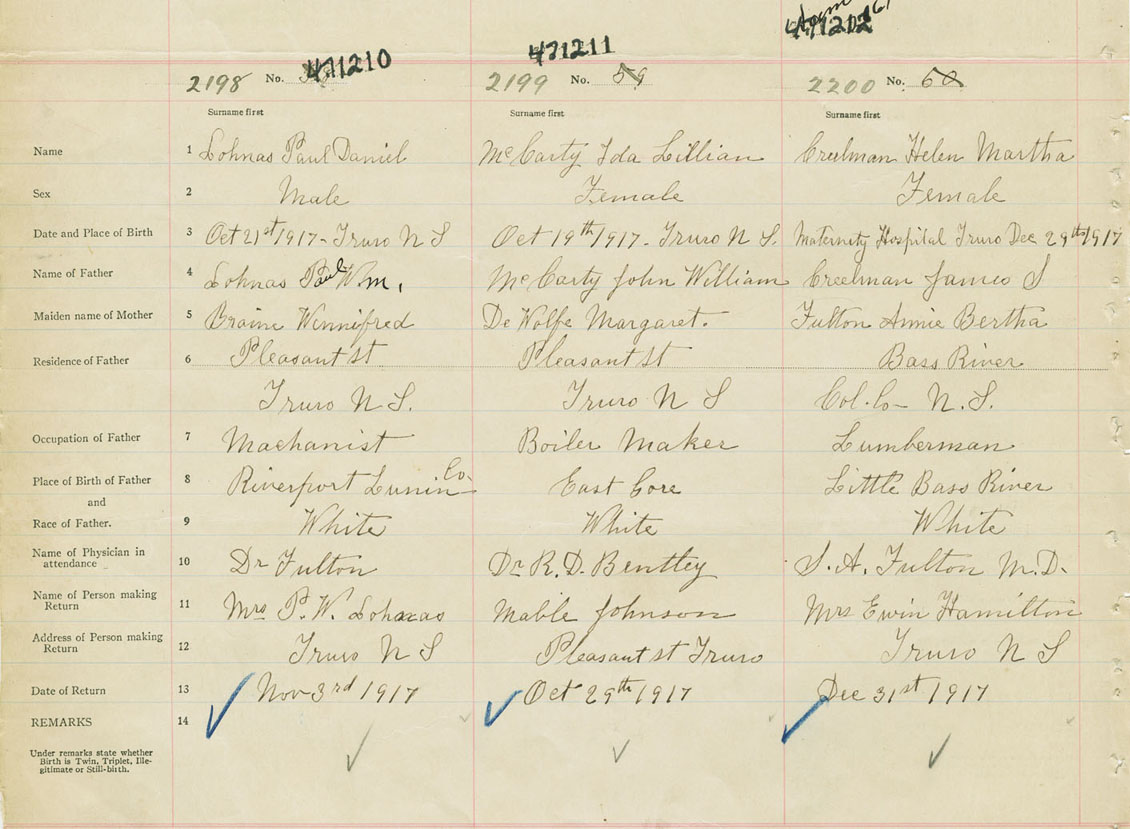 471210 471211 471212
2198 No. 2199 No. 59 2200 No. 60
Surname first Surname first Surname first
Name 1 Lohnas Paul Daniel McCarty Ida Lillian Creelman Helen Martha
Sex 2 Male Female Female
Date and Place of Birth 3 Oct 21st 1917 - Truro N S Oct 19th 1917 - Truro N S. Maternity Hospital Truro Dec 29th 1917
Name of Father 4 Lohnas Paul Wm. McCarty John William Creelman James S
Maiden name of Mother 5 Braine Winnifred De Wolfe Margaret. Fulton Annie Bertha
Residence of Father 6 Pleasant st Pleasant st Bass River
Truro N S. Truro N S Col. Co- N.S.
Occupation of Father 7 Machanist Boiler Maker Lumberman
Place of Birth of Father 8 Riverport Lunin Co. East Gore Little Bass River
and
Race of Father. 9 White White White
Name of Physician in
attendance 10 Dr Fulton Dr R. D. Bentley S. A. Fulton M.D.
Name of Person making
Return 11 Mrs P. W. Lohnas Mable Johnson Mrs Ewin Hamilton
Address of Person making
Return 12 Truro N S Pleasant st Truro Truro N S
Date of Return 13 Nov 3rd 1917 Oct 29th 1917 Dec 31st 1917
REMARKS 14
Under remarks state whether
Birth is Twin, Triplet, Ille-
gitimate or Still-birth.